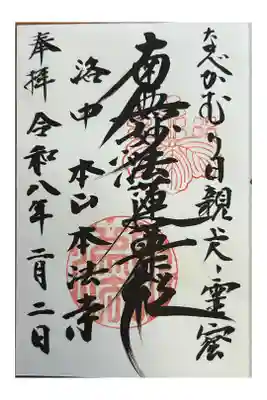 なべかむり日親大上人霊窟
南無妙法蓮華経
洛中 本山本法寺
奉拝 令和八年二月二日